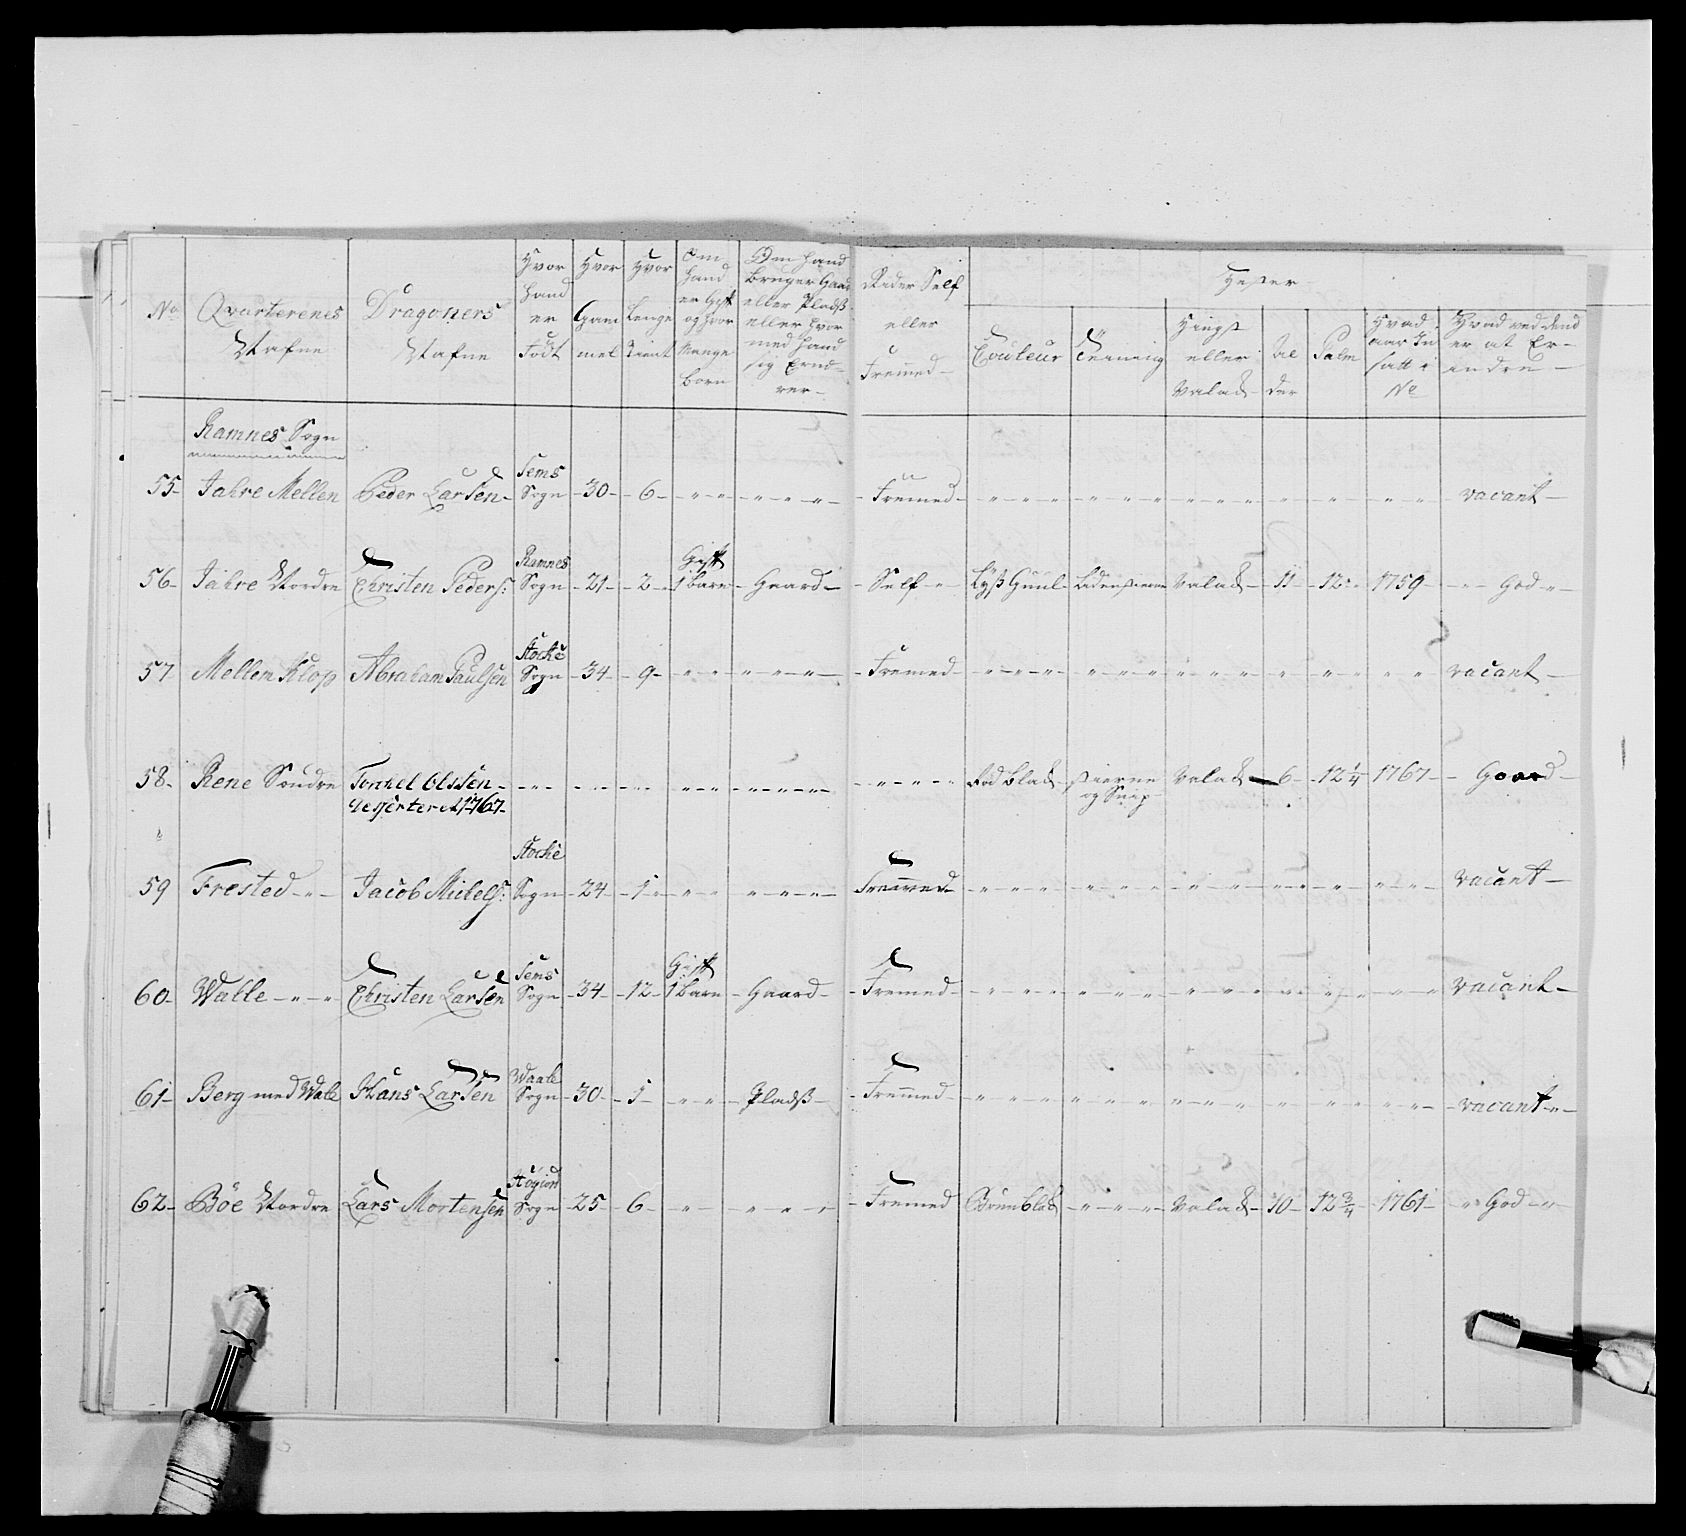 No
Qvarterenes Nafne
Dragoners Nafne
Hvor hand er Född
Hvor Gammel
Hvor Lenge Tient
Om hand er Gift og hvor Mange Børn
Om hand Bruger Gaard eller Pladß eller hvor med hand sig Ernærer
Rider Self eller Fremed
Hester
Couleur
Teining
Hingst eller Valak
Alder
Palm
Hvad aar Insatt i No
Hvad ved dend er at Erindre
Ramnes Sogn
55- Jahre Mellen Peder Larsen- Sems Sogn -30- -6- - Fremed- vacant-
56- Jahre Nordre Christen Peders: Ramnes Sogn -21- -2- Gift 1 Barn - Gaard- - Self - Lyß Guul Liden stierne Valak 11 -12- 1759 - God -
57 Mellem Klop Abraham Paulsen Stocke Sogn -34- -9- - Fremed- vacant-
58- Rene Söndre Torkel Olssen- Deserteret 1767- Röd Blak stierne og Snip Valak -6- -12¼ 1767- - Goord-
59 Frested - Jacob Mickels: Stocke Sogn -24- -1- Fremmed- vacant-
60- Walle - Christen Larsen Sems Sogn -34- -12- Gift 1 Barn - Gaard- - Fremed- vacant-
61- Berg med Wale Hans Larsen Waale Sogn -30- -1- - Pladß- - Fremmed- -vacant-
62- Böe Nordre Lars Mortensen Sogn -25- 6- - Fremed Brunblak Valak- 10- 12¾ -1761- - God -